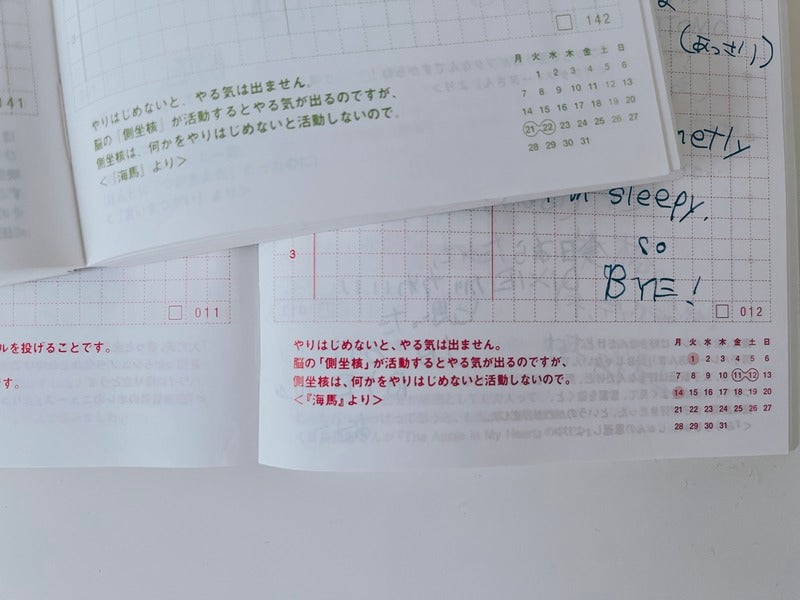 142
141
やりはじめないと、やる気は出ません。
脳の「側坐核」が活動するとやる気が出るのですが、
側坐核は、何かをやりはじめないと活動しないので。
<『海馬』より>
月 火 水 木 金 土 日
1 2 3 4 5 6
7 8 9 10 11 12 13
14 15 16 17 18 19 20
21 22 23 24 25 26 27
28 29 30 31
(あっさり)
sleepy.
so
BYE!
3
011
012
ルを投げることです。
です。
やりはじめないと、やる気は出ません。
脳の「側坐核」が活動するとやる気が出るのですが、
側坐核は、何かをやりはじめないと活動しないので。
<『海馬』より>
月 火 水 木 金 土 日
1 2 3 4 5 6
7 8 9 10 11 12 13
14 15 16 17 18 19 20
21 22 23 24 25 26 27
28 29 30 31